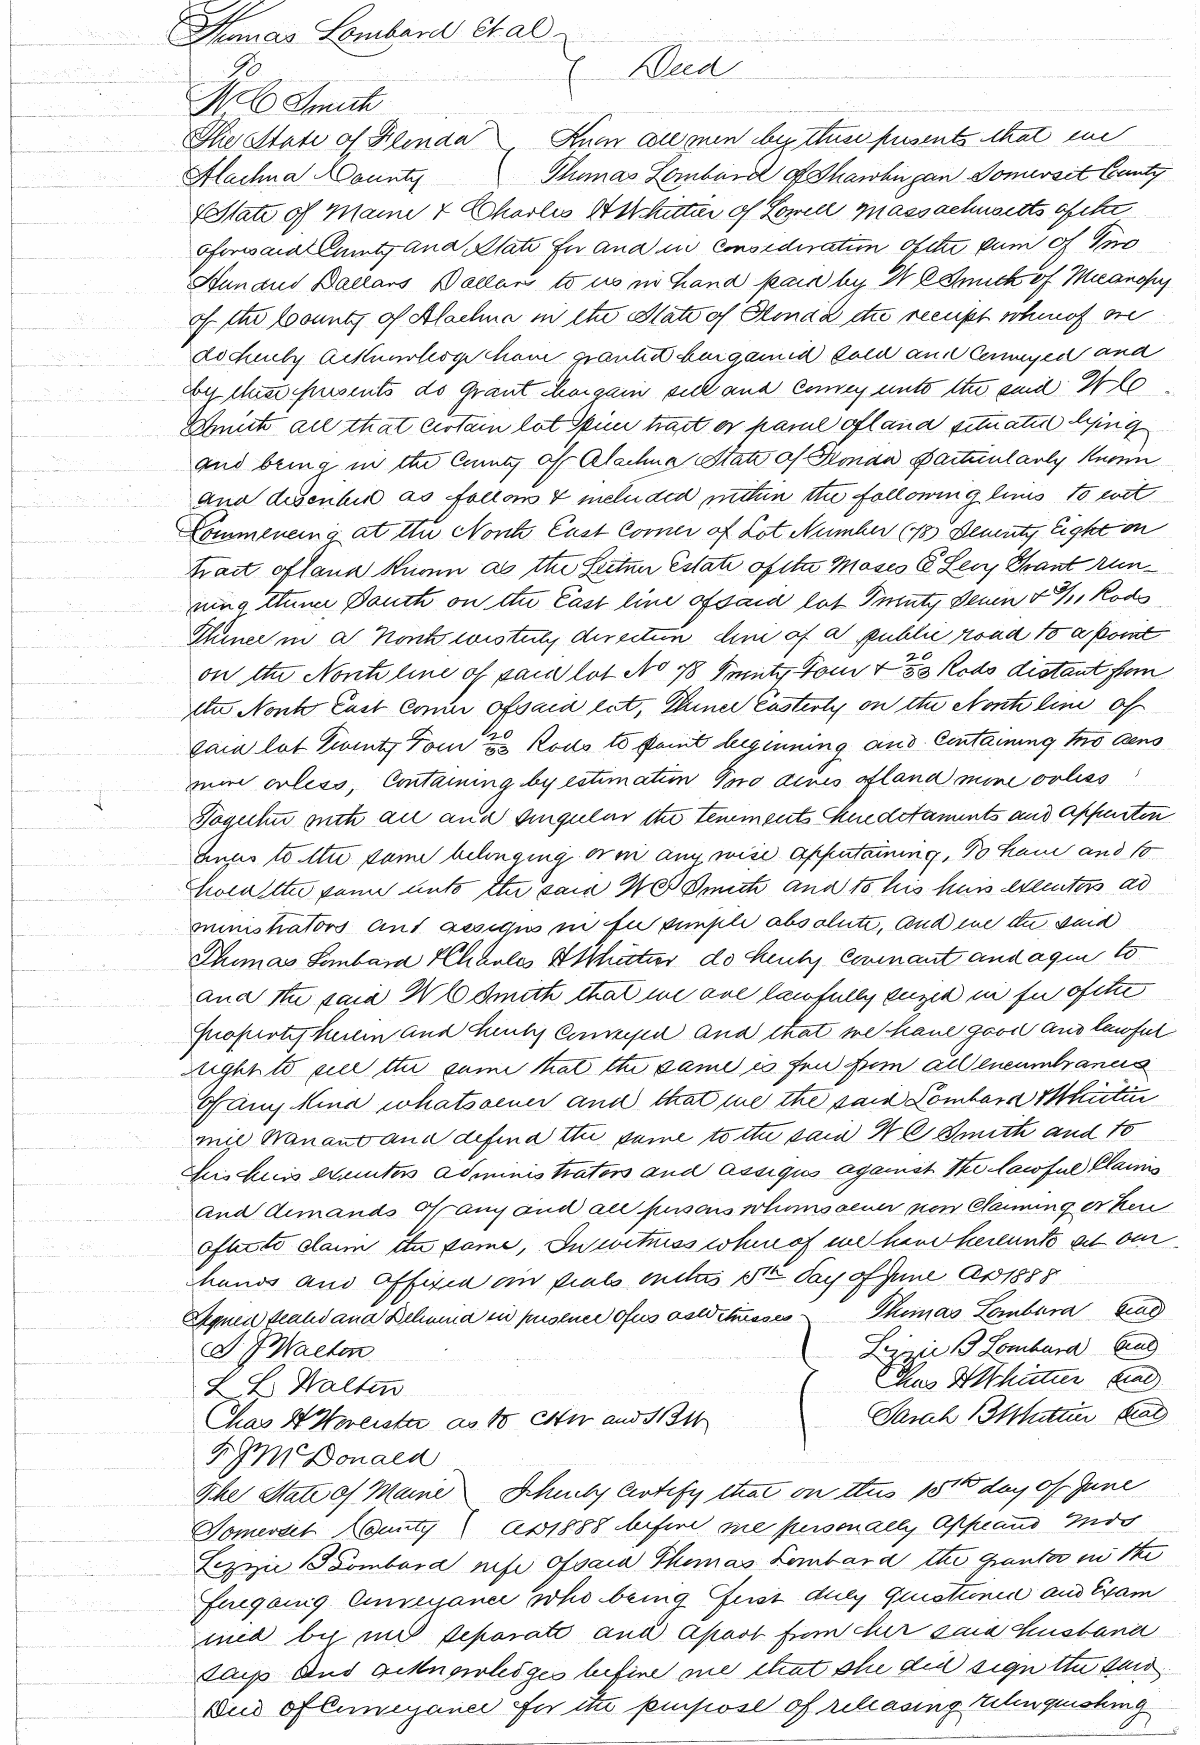 Thomas Lombard et al
To } Deed
W C Smith
The State of Florida } Know all men by these presents that we
Alachua County { Thomas Lombard of Skowhegan Somerset County
& State of Maine & Charles H Whittier of Lowell Massachusetts of the
aforesaid County and State for and in consideration of the sum of Two
Hundred Dallars Dallars to us in hand paid by W C Smith of Micanopy
of the County of Alachua in the State of Florida the receipt whereof we
do hereby acknowledge have granted bargained sold and conveyed and
by these presents do grant bargain sell and convey unto the said W C
Smith all that certain lot piece tract or parcel of land situated lying
and being in the County of Alachua State of Florida particularly known
and described as follows & included within the following lines to wit
Commencing at the North East Corner of Lot Number (78) Seventy Eight on
tract of land known as the Leitner Estate of the Moses E Levy Grant run-
ning thence South on the East line of said lot Twenty Seven & 3/11 Rods
Thence in a North westerly direction line of a public road to a point
on the North line of said lot No 78 Twenty Four & 20/33 Rods distant from
the North East Corner of said lot, Thence Easterly on the North line of
said lot Twenty Four 20/33 Rods to point beginning and containing two acres
more or less, containing by estimation Two acres of land more or less
Together with all and singular the tenements hereditaments and appurten
ances to the same belonging or in any wise appertaining, To have and to
hold the same unto the said W C Smith and to his heirs executors ad
ministrators and assigns in fee simple absolute, and we the said
Thomas Lombard & Charles H Whittier do hereby covenant and agree to
and the said W C Smith that we are lawfully seized in fee of the
property herein and hereby conveyed and that we have good and lawful
right to sell the same that the same is free from all encumbrances
of any kind whatsoever and that we the said Lombard & Whittier
will warrant and defend the same to the said W C Smith and to
his heirs executors administrators and assigns against the lawful Claims
and demands of any and all persons whomsoever now claiming or here
after to claim the same, In witness whereof we have hereunto set our
hands and affixed our seals on this 15th day of June AD 1888
Signed sealed and Delivered in presence of us as witnesses } Thomas Lombard seal
S J Walton Lizzie B Lombard seal
L L Walton Chas H Whittier seal
Chas H Worcester as to CHW and SBW Sarah B Whittier seal
F J McDonald
The State of Maine } I hereby certify that on this 15th day of June
Somerset County { AD 1888 before me personally appeared Mrs
Lizzie B Lombard wife of said Thomas Lombard the grantor in the
foregoing Conveyance who being first duly questioned and Exam
ined by me separate and apart from her said husband
says and acknowledges before me that she did sign the said
Deed of Conveyance for the purpose of releasing relinquishing